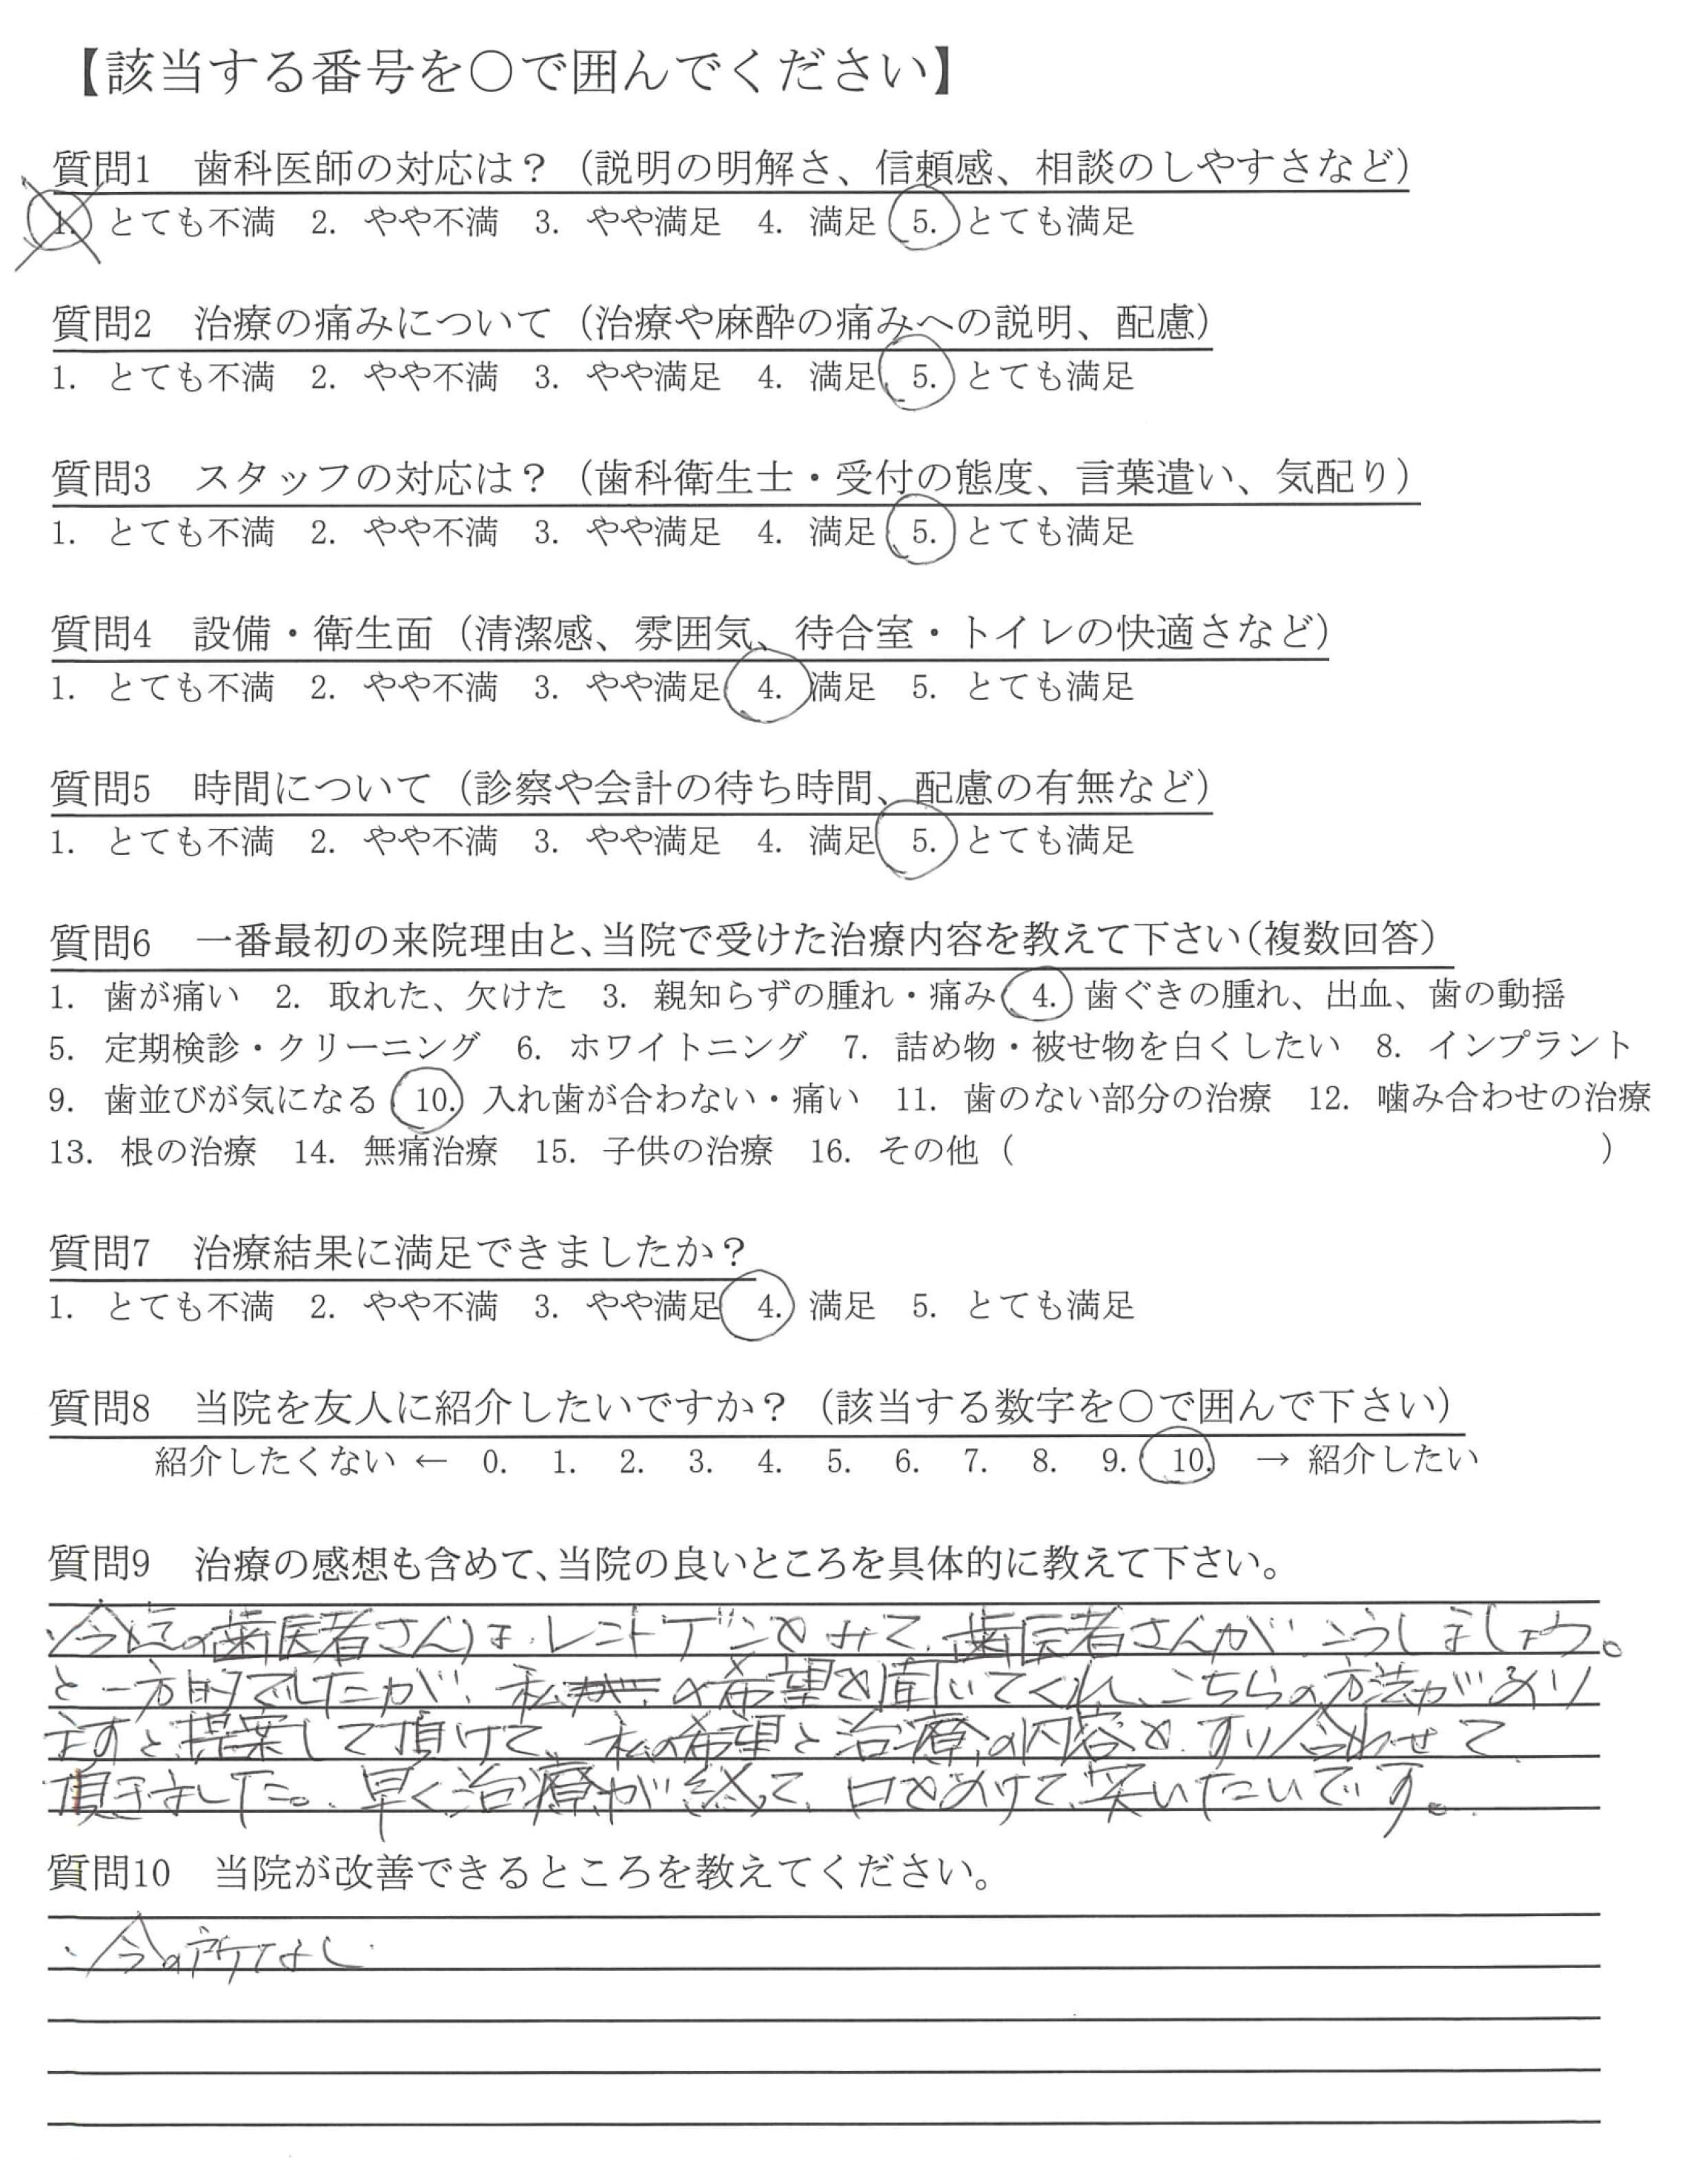 【該当する番号を○で囲んでください】
質問1 歯科医師の対応は？（説明の明解さ、信頼感、相談のしやすさなど）
1. とても不満 2. やや不満 3. やや満足 4. 満足 5. とても満足
質問2 治療の痛みについて（治療や麻酔の痛みへの説明、配慮）
1. とても不満 2. やや不満 3. やや満足 4. 満足 5. とても満足
質問3 スタッフの対応は？（歯科衛生士・受付の態度、言葉遣い、気配り）
1. とても不満 2. やや不満 3. やや満足 4. 満足 5. とても満足
質問4 設備・衛生面（清潔感、雰囲気、待合室・トイレの快適さなど）
1. とても不満 2. やや不満 3. やや満足 4. 満足 5. とても満足
質問5 時間について（診察や会計の待ち時間、配慮の有無など）
1. とても不満 2. やや不満 3. やや満足 4. 満足 5. とても満足
質問6 一番最初の来院理由と、当院で受けた治療内容を教えて下さい（複数回答）
1. 歯が痛い 2. 取れた、欠けた 3. 親知らずの腫れ・痛み 4. 歯ぐきの腫れ、出血、歯の動揺
5. 定期検診・クリーニング 6. ホワイトニング 7. 詰め物・被せ物を白くしたい 8. インプラント
9. 歯並びが気になる 10. 入れ歯が合わない・痛い 11. 歯のない部分の治療 12. 噛み合わせの治療
13. 根の治療 14. 無痛治療 15. 子供の治療 16. その他（ ）
質問7 治療結果に満足できましたか？
1. とても不満 2. やや不満 3. やや満足 4. 満足 5. とても満足
質問8 当院を友人に紹介したいですか？（該当する数字を○で囲んで下さい）
紹介したくない ← 0. 1. 2. 3. 4. 5. 6. 7. 8. 9. 10. → 紹介したい
質問9 治療の感想も含めて、当院の良いところを具体的に教えて下さい。
・今迄の歯医者さんは、レントゲンをみて、歯医者さんがこうしましょう。
と一方的でしたが、私の希望を聞いてくれ、こちらの方法があり
ますと提案して頂けて、私の希望と治療の内容を、すり合わせて
頂きました。早く治療が終って、口をあけて、笑いたいです。
質問10 当院が改善できるところを教えてください。
・今の所なし